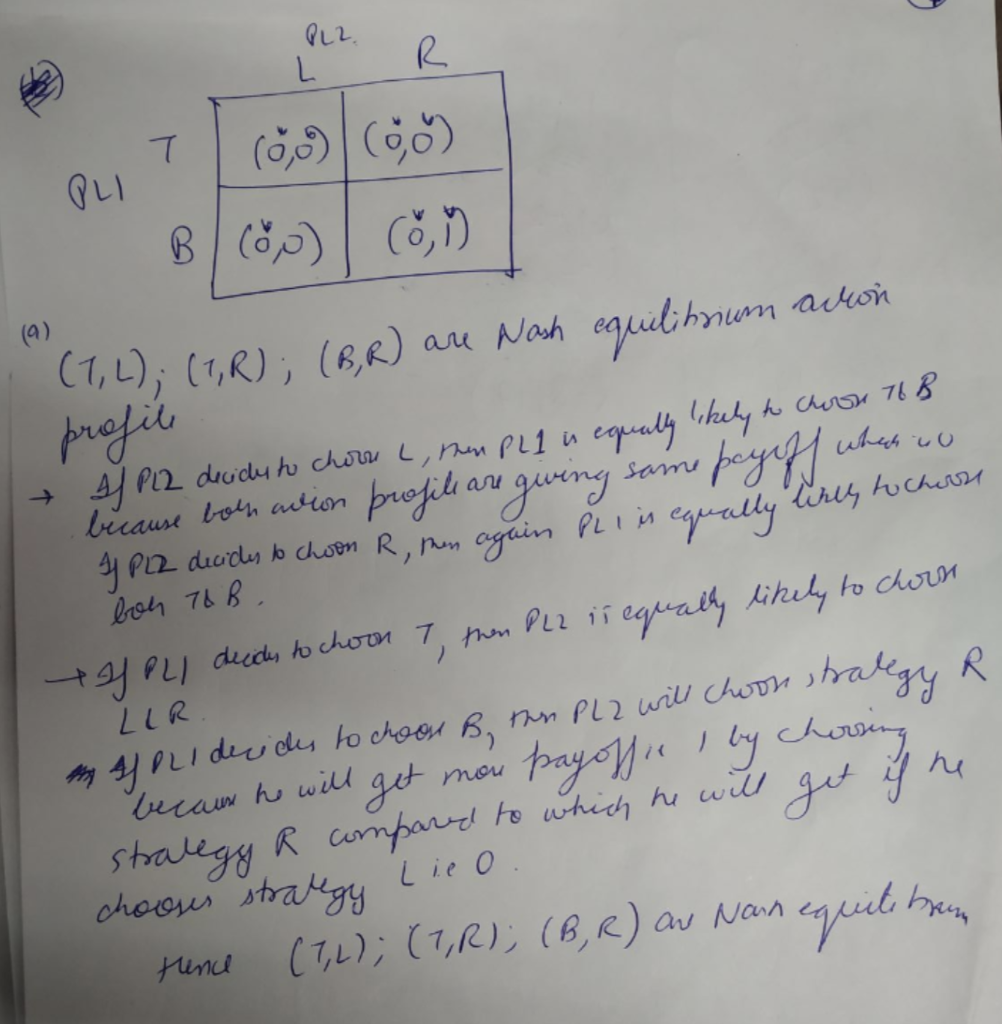 PL2.
L R
T (0,0) (0,0)
PL1
B (0,0) (0,1)
(a)
(T,L); (T,R); (B,R) are Nash equilibrium action
profile
→ If PL2 decides to choose L, then PL1 is equally likely to choose T & B
because both action profile are giving same payoff when is 0
If PL2 decides to choose R, then again PL1 is equally likely to choose
both T & B.
→ If PL1 decides to choose T, then PL2 is equally likely to choose
L & R.
If PL1 decides to choose B, then PL2 will choose strategy R
because he will get more payoff ie 1 by choosing
strategy R compared to which he will get if he
chooses strategy L i.e 0.
Hence (T,L); (T,R); (B,R) are Nash equilibrium